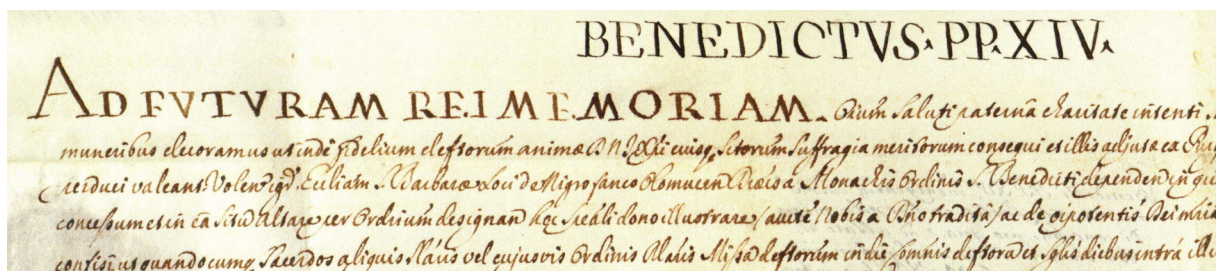 BENEDICTVS·PP·XIV·
AD FVTVRAM REI MEMORIAM. Oium Saluti paterna charitate intenti
muneribus decoramus ut inde fidelium deftorum animæ D. N. JXti eiusq; Sctorum Suffragia meritorum consequi et illis adjutæ ea
perduci valeant. Volen igr Eccliam S. Barbaræ Loci de Nigro Olomucen a Monachis Ordinis S. Benedicti dependen in
concessum et in ea situm Altare per Ordrium designan hoc spæali dono illustrare, aucte Nobis a Dno tradita, ac de oipotentis Dei
confisi ut quandocumq; Sacerdos aliquis vel cujusvis Ordinis Missam deftorum in die omnis deftorum et diebus intra